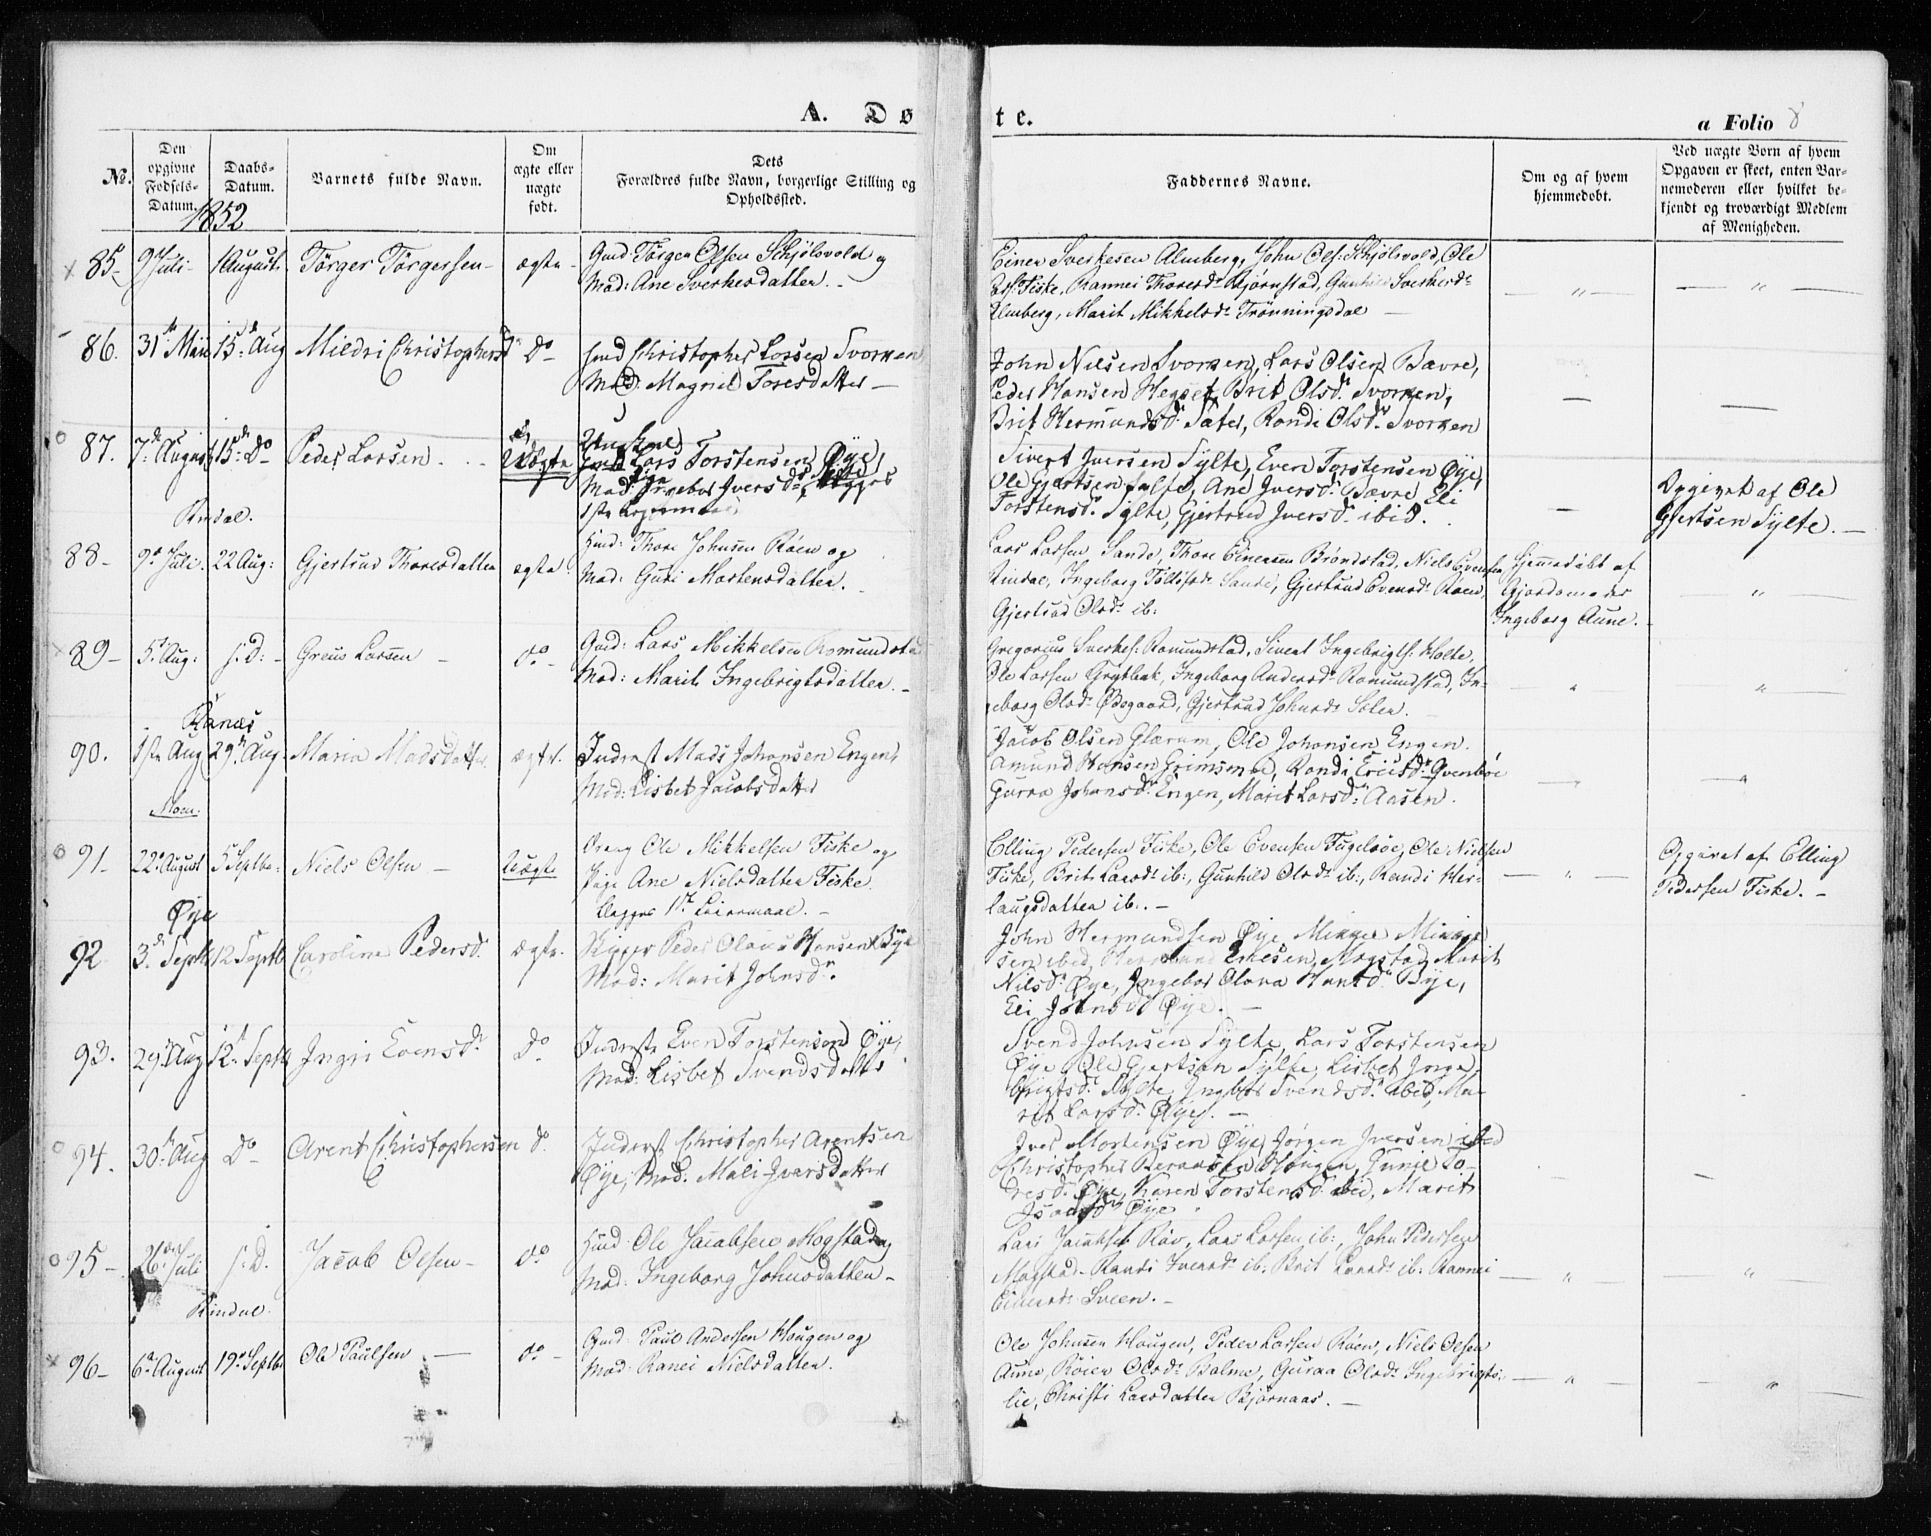 A. Dø
te.
a Folio 8
No.
Den opgivne Fødsels-Datum.
Daabs-Datum.
Barnets fulde Navn.
Om ægte eller uægte født.
Dets Forældres fulde Navn, borgerlige Stilling og Opholdssted.
Faddernes Navne.
Om og af hvem hjemmedøbt.
Ved uægte Born af hvem Opgaven er skeet, enten Barnemoderen eller hvilket bekjendt og troværdigt Medlem af Menigheden.
1852
85- 9 Juli- 1 August Törger Törgersen- ægte-
Gmd: Törger Olsen Schjölsvold og
Mod: Ane Sverkesdatter.-
Einer Sverkesen Almberg, John Ols: Schjölsvold, Ole
Fiske, Rannei Thoresdr Bjørnstad, Gunhild Sverkesdr
Almberg, Marit Mikkelsdr Trönningsdal -
86. 31te 15de Aug Mildri Christophersd Do
Christopher Larsen Svorken,
Mod. Magnil Toresdatter -
John Nilsen Svorken, Lars Olsen Bævre,
Peder Hansen Hegset, Brit Olsdr Svorken,
Brit Hermundsdr Sæter, Randi Olsdr Svorken
87. 7de August 15de Do Peder Larsen. Uægte
Ungkarl
Lars Torstensen Øye,
Mod: Ingebor Iversdr
Sivert Iversen Sylte, Even Torstensen Øye,
Ole Gjertsen Sylte, Ane Iversdr Bævre, Eli
Torstensdr Sylte, Gjertrud Iversdr ibid.
Opgivet af Ole
Gjertsen Sylte. -
Rindal.
88- 9de Juli. 22 Aug: Gjertrud Thoresdatter ægte.
Thore Johnsen Røen og
Mod: Guri Mortensdatter.
Lars Larsen Sande, Thore Einersen Brøndstad, Niels Evensen
Rindal, Ingeborg Sande, Gjertrud Evensdr Røen,
Gjertrud Olsdr ib:
Hjemmedøbt af
Gjordemoder
Ingeborg Aune.
89- 5te Aug: s:D:- Greus Larsen do-
Gmd: Lars Mikkelsen Romundstad
Mod: Marit Ingebrigtsdatter.-
Gregorius Sverkes: Romundstad, Sivert Ingebrigts: Holte,
Ole Larsen Grytbak, Ingeborg Andersdr Romundstad, In-
geborg Olsdr Ødegaard, Gjertrud Johnsdr Solem.
Ranæs
90. 1ste Aug 29de Aug. Maria Madsdatter. ægte.
Inderst Mads Johansen Engen,
Mod: Lisbet Jacobsdatter
Jacob Olsen Glærum, Ole Johansen Engen.
Amund Hansen Grimsmo, Randi Ericsdr Qvenbøe
Guraa Johansdr Engen, Marit Larsdr Aasen.
Moen.
91- 22de August 5 Septbr: Niels Olsen - Uægte
Dreng Ole Mikkelsen Fiske og
Pige Ane Nielsdatter Fiske
Begges 1ste Leiermaal. -
Elling Pedersen Fiske, Ole Evensen Fugelsøe, Ole Nielsen
Fiske, Brit Larsdr ib:, Gunhild Olsdr ib:, Randi Her-
laugsdatter ib:. -
Opgivet af Elling
Pedersen Fiske. -
Øye
92 3de Septb 12 Septb Caroline Pedersd. ægte.
Peder Olaus Hansen Bye
Mod: Marit Johnsdr.
John Hermundsen Øye,
sen ibid, Ericsen Mogstad, Marit
Nilsdr Øye, Ingebor Olava Hansdr Bye,
Eli Johnsdr Øye. -
93. 29de Aug 12te Septb Ingri Evensdr Do.
Inderst Even Torstensen Øye,
Mod: Lisbet Svendsdatter
Svend Johnsen Sylte, Lars Torstensen
Øye, Ole Gjertsen Sylte, Lisbet Inge-
brigtsdr Sylte, Ingebor Svendsdr ibid, Ma-
rit Larsdr Øye. -
94. 30te Aug Do- Arent Christophersen do.
Inderst Christopher Arentsen
Øye, Mod. Mali Iversdatter
Iver Mortensen Øye, Jørgen Iversen ibid
Christopher Haugen, To-
resdr Øye, Karen Torstensdr ibid, Marit
Øye
95- 26de Juli s.D. Jacob Olsen- do
Ole Jacobsen Mogstad og
Mod: Ingeborg Johnsdatter-
Lars Jacobsen Røv, Lars Larsen ib:, John Pedersen
Mogstad- Randi Iversdr ib: Brit Larsdr ib: Rannei
Sveen. -
Rindal.
96- 6te August 19de Septbr Ole Paulsen - do-
Gmd: Paul Andersen Haugen og
Mod: Ranei Nielsdatter.
Ole Johnsen Haugen, Peder Larsen Røen, Niels Olsen
Aune, Olsdr Bolme, Guraa Olsdr Ingebrigts-
lie, Christi Larsdatter Bjørnaas. -